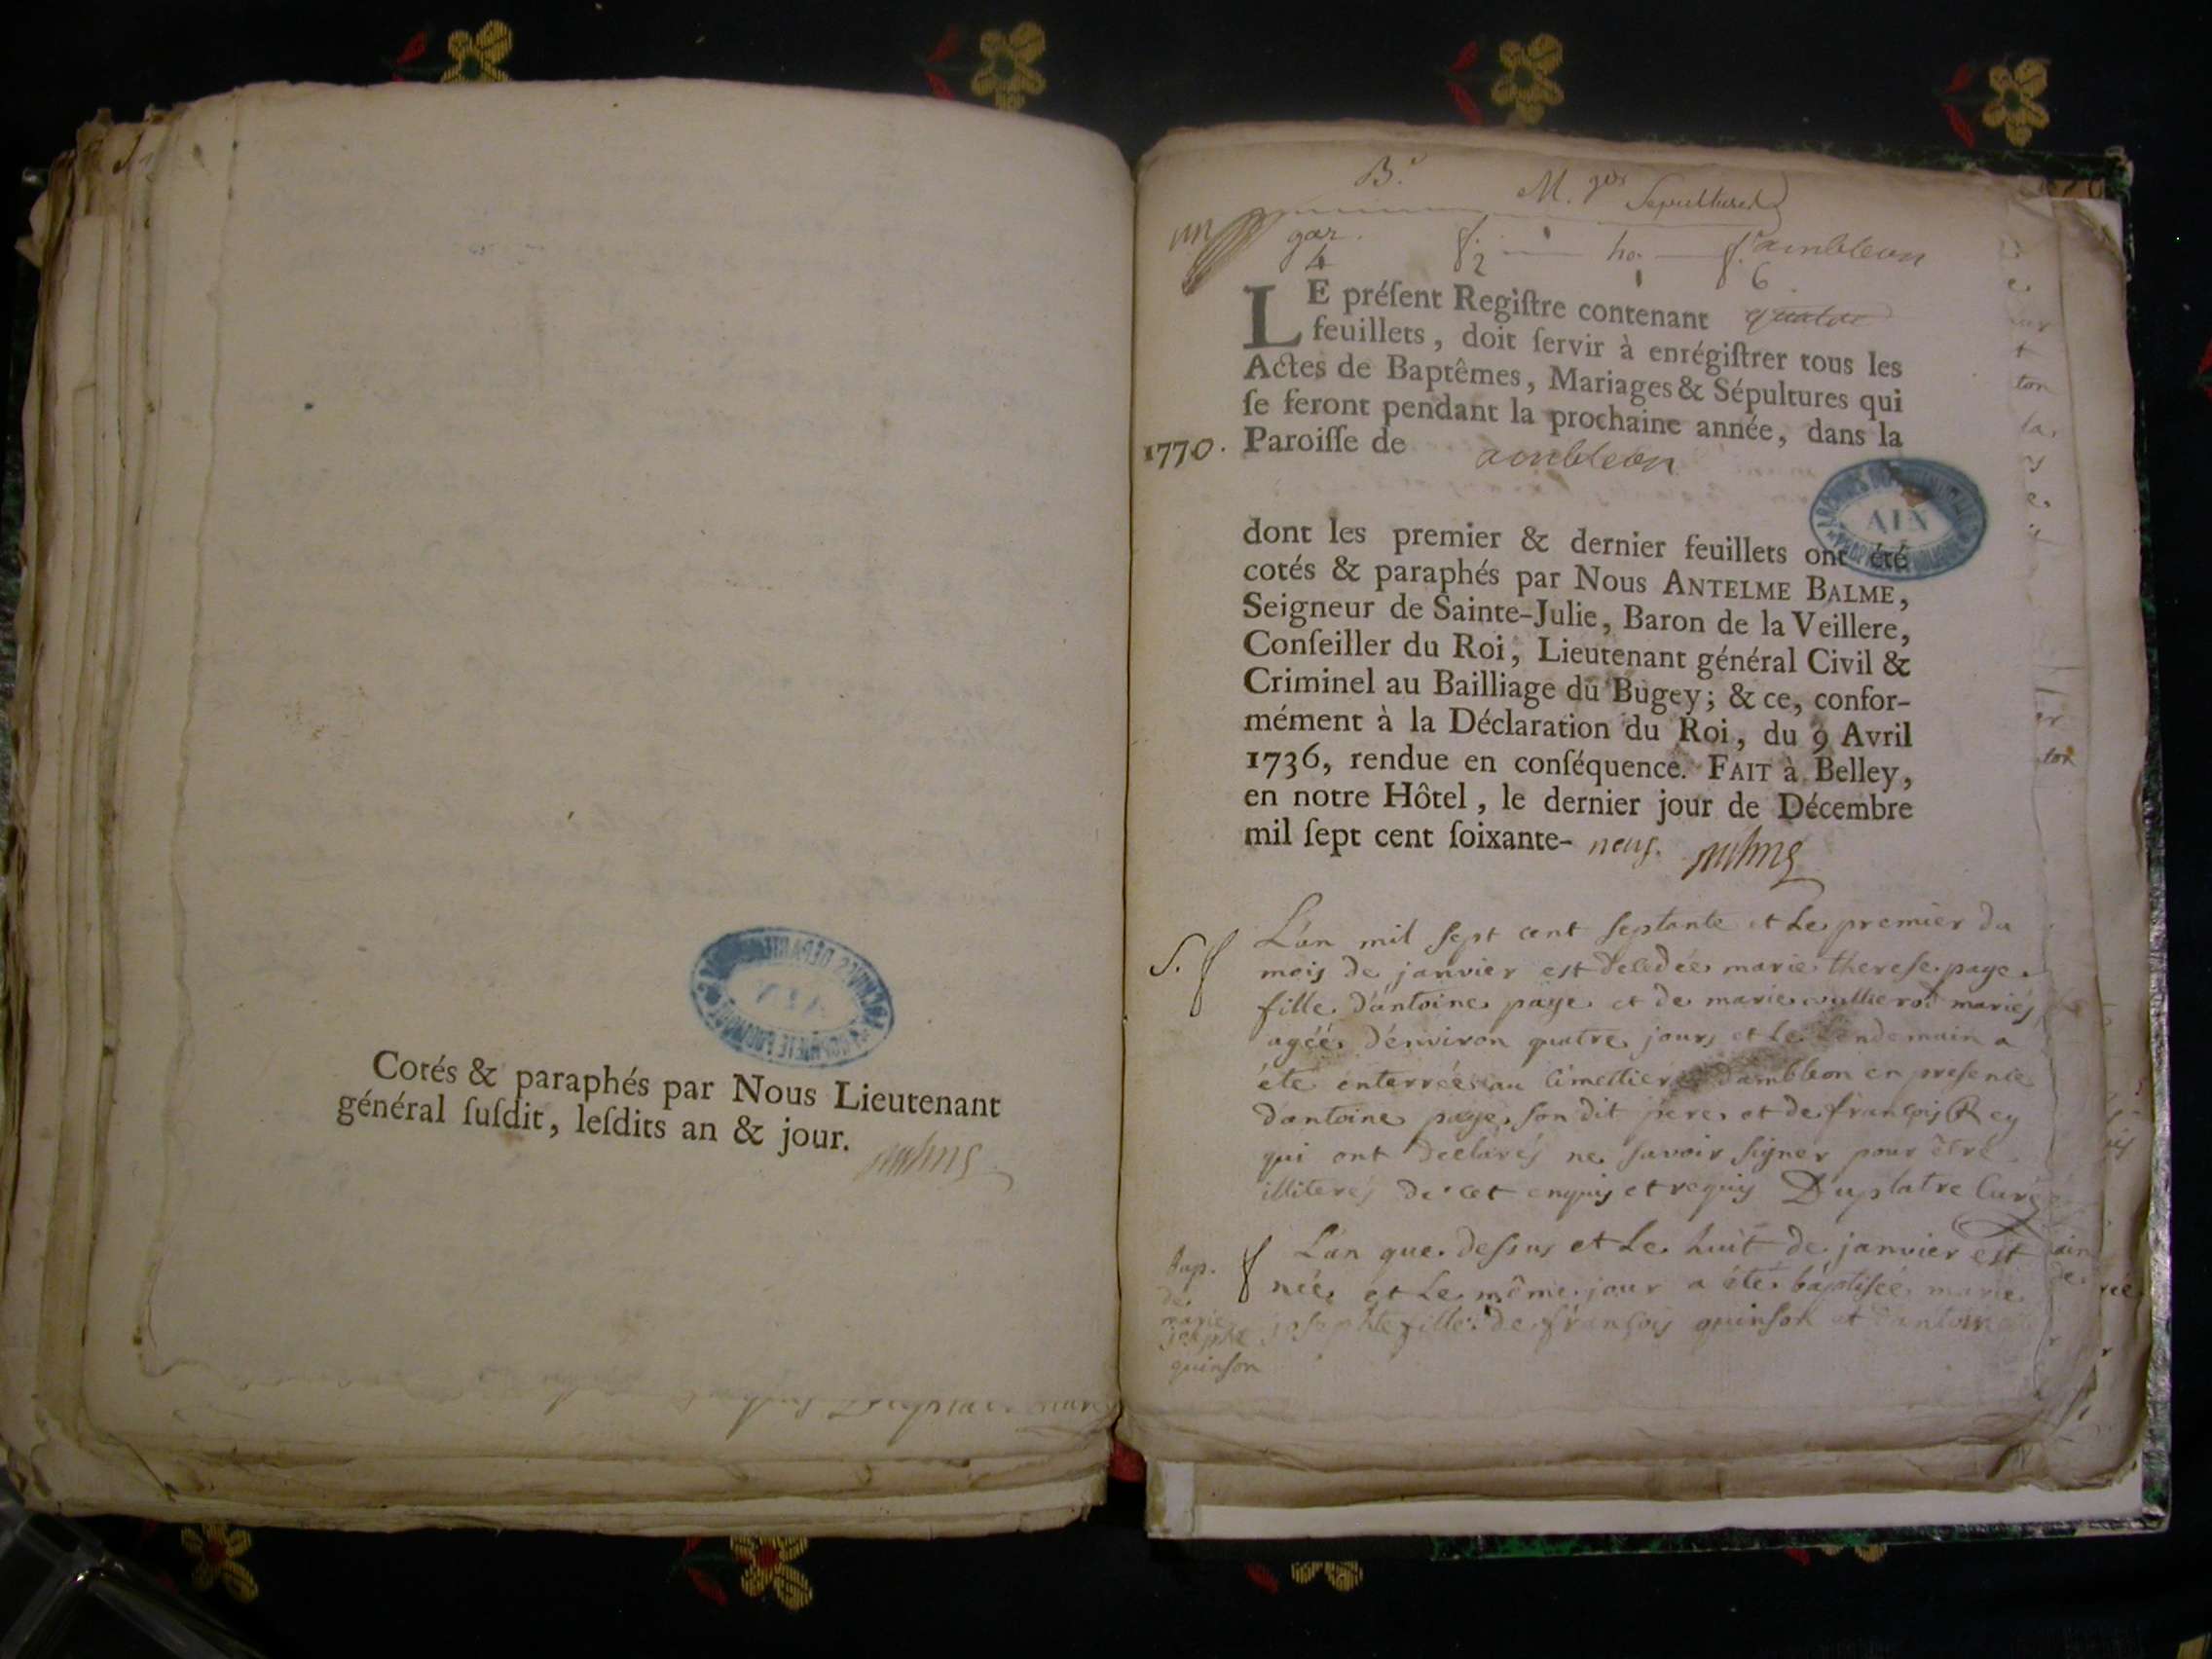 Cotés & paraphés par Nous Lieutenant
général ſuſdit, leſdits an & jour.
B.
M. ges Sepultures
un
gar. f. ho. f. ambleon
4 2 6
LE préſent Regiſtre contenant quatre
feuillets, doit ſervir à enrégiſtrer tous les
Actes de Baptêmes, Mariages & Sépultures qui
ſe feront pendant la prochaine année, dans la
1770. Paroiſſe de ambleon
ARCHIVES DÉPARTEMENTALES
AIN
dont les premier & dernier feuillets ont été
cotés & paraphés par Nous ANTELME BALME,
Seigneur de Sainte-Julie, Baron de la Veillere,
Conſeiller du Roi, Lieutenant général Civil &
Criminel au Bailliage du Bugey; & ce, confor-
mément à la Déclaration du Roi, du 9 Avril
1736, rendue en conſéquence. FAIT à Belley,
en notre Hôtel, le dernier jour de Décembre
mil ſept cent ſoixante- neuf. Balme
S. L'an mil sept cent septante et le premier du
mois de janvier est deledée marie therese paye
fille d'antoine paye et de marie mariés
agéé d'environ quatre jours et le lendemain a
été enterrée au cimettiere d'ambleon en presence
d'antoine paye son dit pere et de françois Rey
qui ont declarés ne savoir signer pour étre
illiterés de cet enquis et requis Duplatre Curé
Bap. L'an que dessus et le huit de janvier est
de née et le même jour a été baptisée marie
marie josephte fille de françois quinson et d'antoine
josephte
quinson